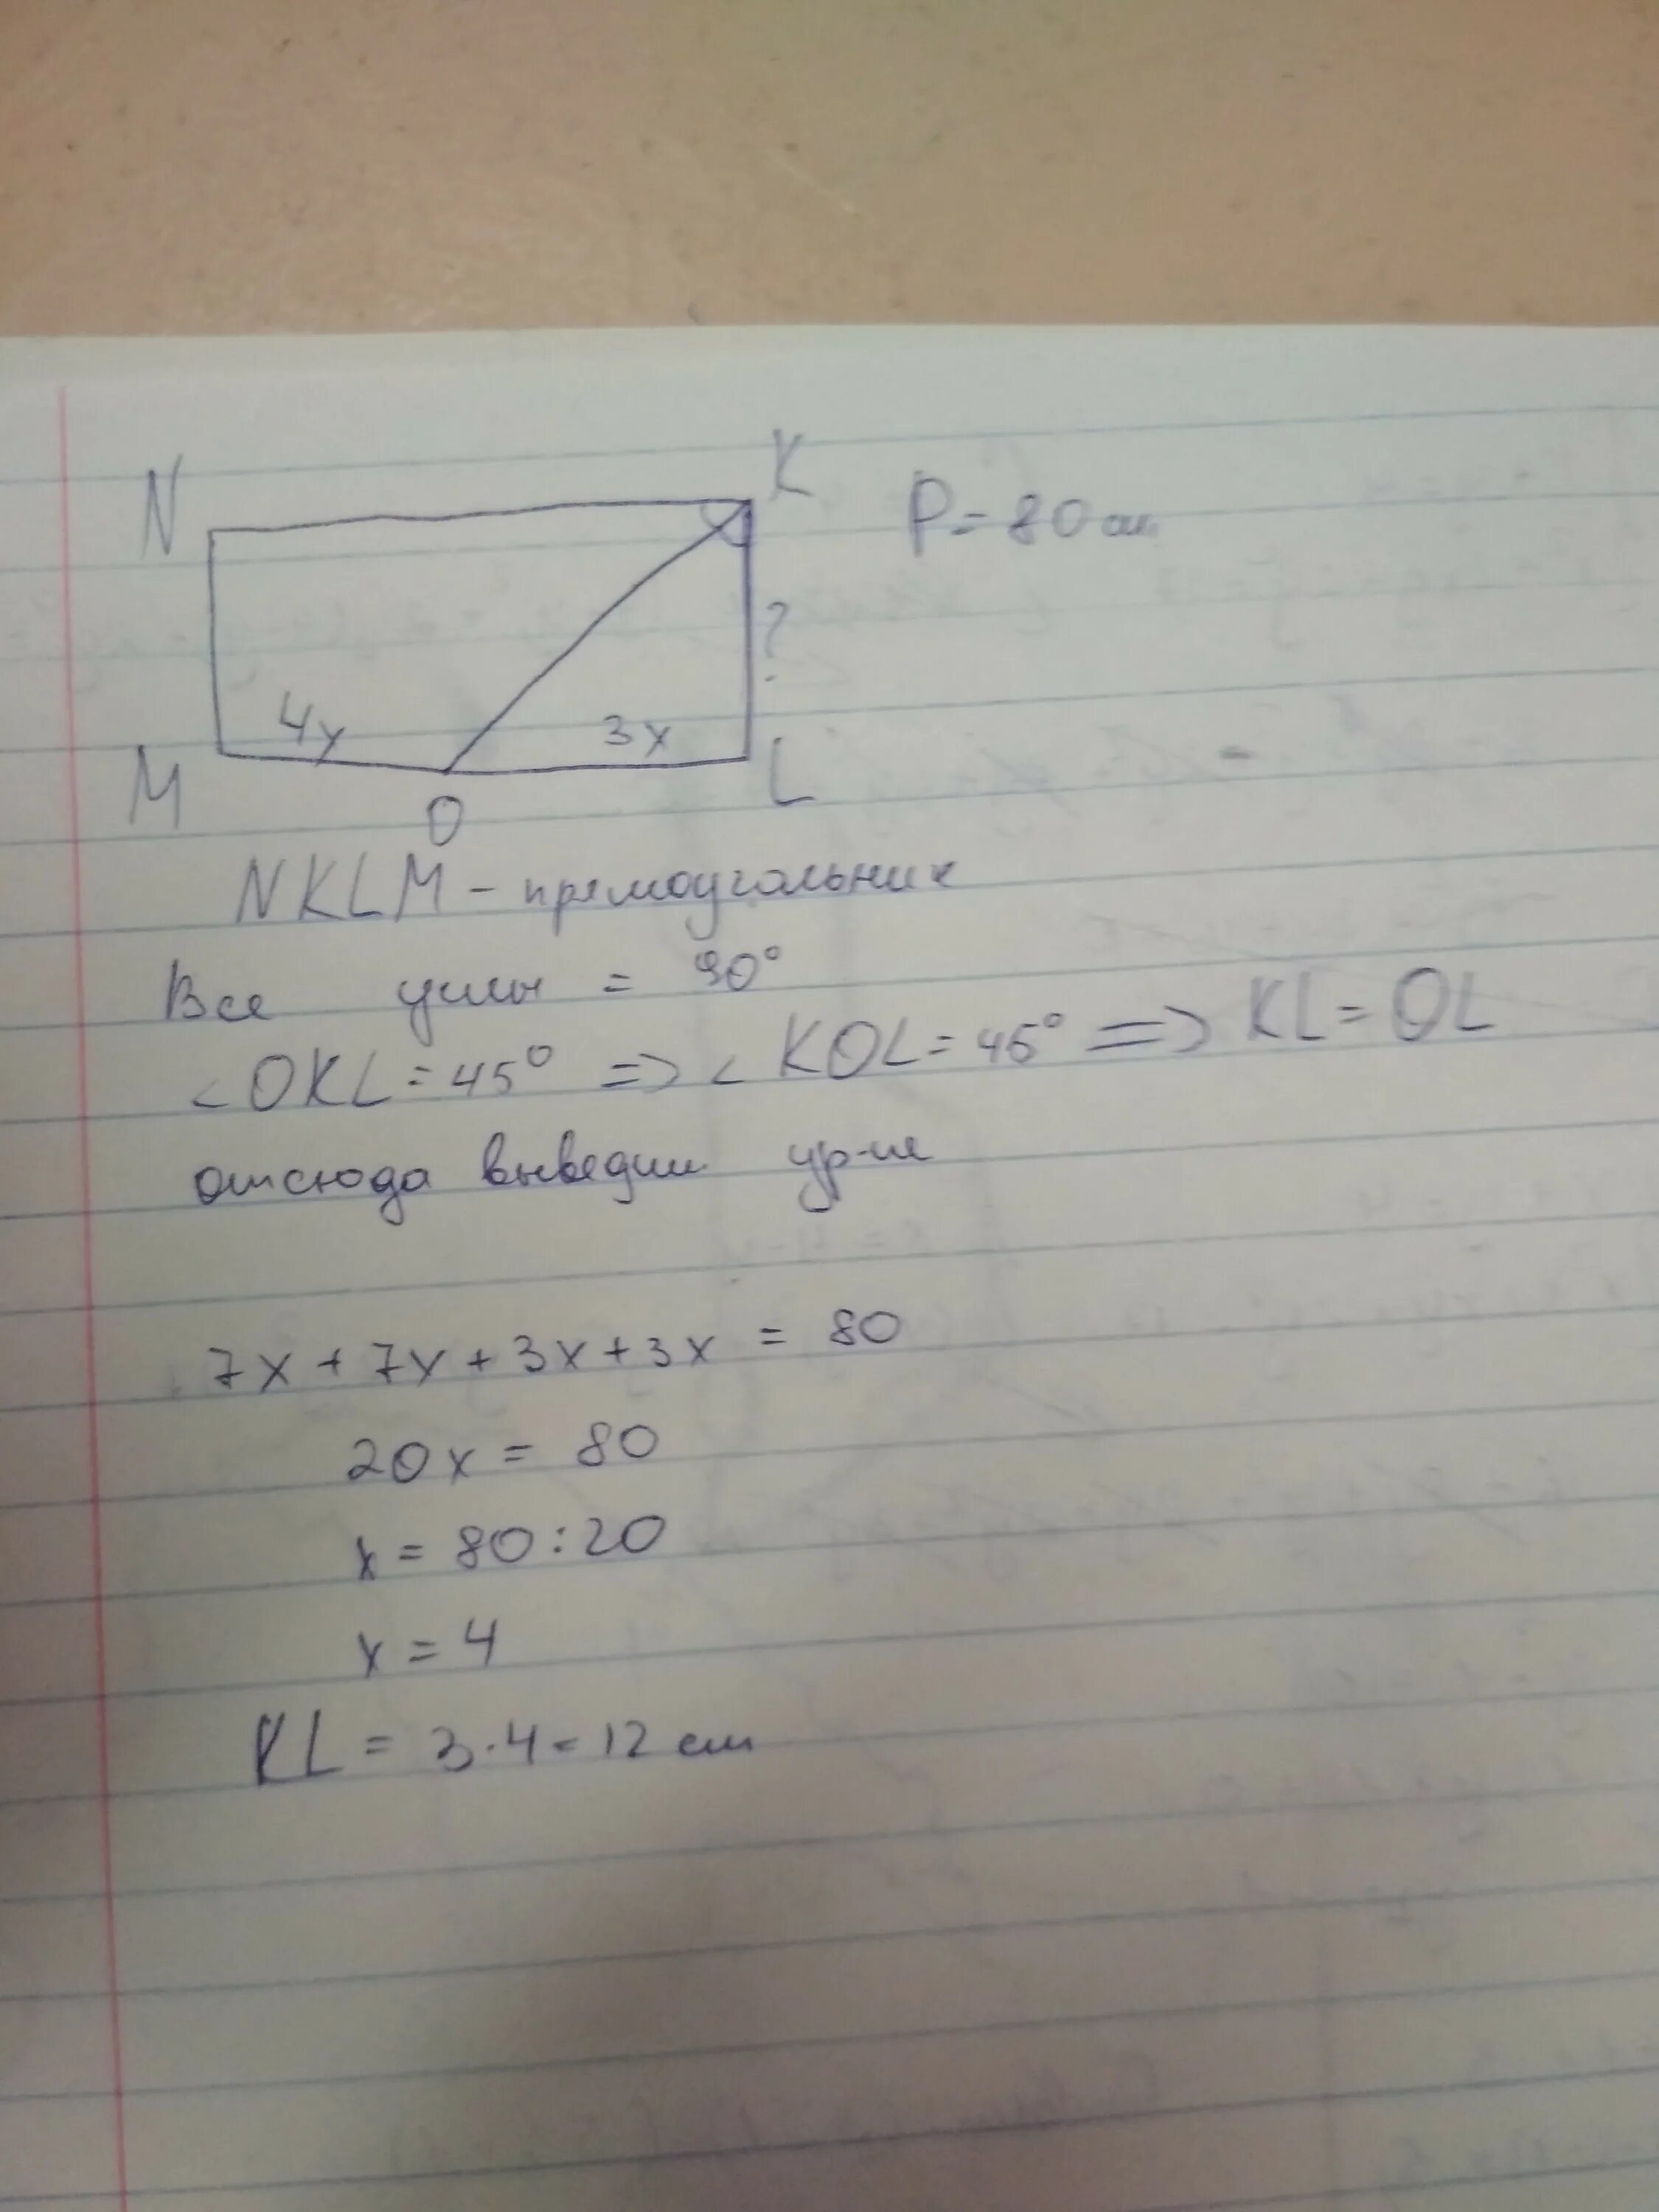 N K P = 80 см
?
4x 3x
M O L
NKLM - прямоугольник
Все углы = 90°
<OKL = 45° => < KOL = 45° => KL = OL
отсюда выведим ур-ие
7x + 7x + 3x + 3x = 80
20x = 80
x = 80 : 20
x = 4
KL = 3 · 4 = 12 см